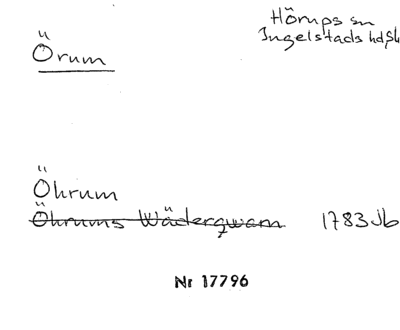 Hörups sn
Ingelstads hd, Sk
Örum
Öhrum
Öhrums Wäderqwarn 1783 Jb
Nr 17796